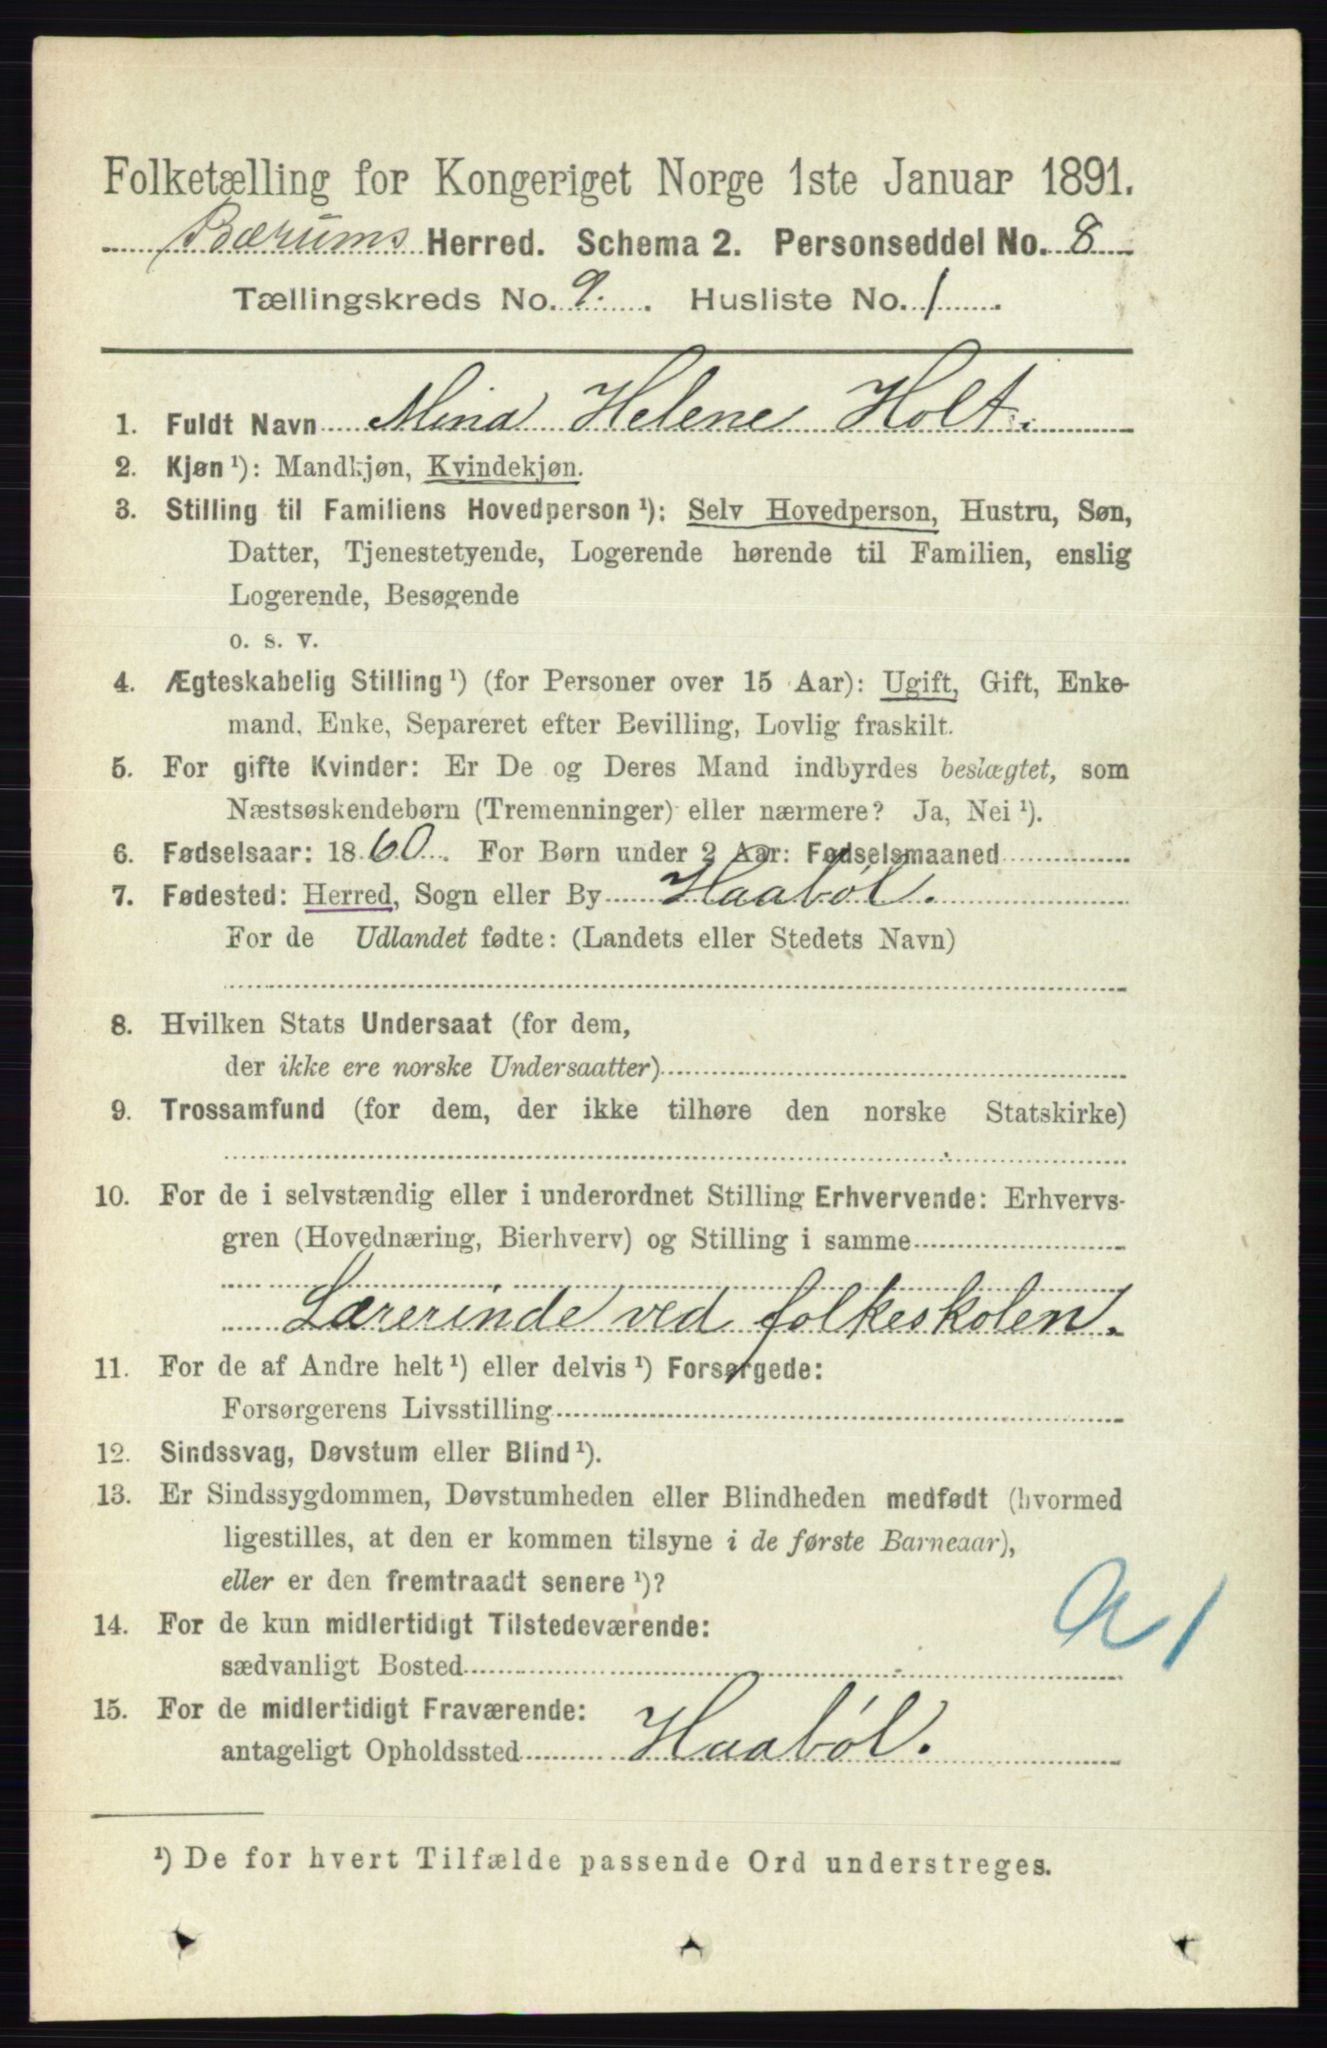 Folketælling for Kongeriget Norge 1ste Januar 1891.
Bærums Herred. Schema 2. Personseddel No. 8
Tællingskreds No. 9. Husliste No. 1
1. Fuldt Navn Mina Helene Holt.
2. Kjøn ¹): Mandkjøn, Kvindekjøn.
3. Stilling til Familiens Hovedperson ¹): Selv Hovedperson, Hustru, Søn,
Datter, Tjenestetyende, Logerende hørende til Familien, enslig
Logerende, Besøgende
o. s. v.
4. Ægteskabelig Stilling ¹) (for Personer over 15 Aar): Ugift, Gift, Enke-
mand, Enke, Separeret efter Bevilling, Lovlig fraskilt.
5. For gifte Kvinder: Er De og Deres Mand indbyrdes beslægtet, som
Næstsøskendebørn (Tremenninger) eller nærmere? Ja, Nei ¹).
6. Fødselsaar: 1860. For Børn under 2 Aar: Fødselsmaaned
7. Fødested: Herred, Sogn eller By Haabøl.
For de Udlandet fødte: (Landets eller Stedets Navn)
8. Hvilken Stats Undersaat (for dem,
der ikke ere norske Undersaatter)
9. Trossamfund (for dem, der ikke tilhøre den norske Statskirke)
10. For de i selvstændig eller i underordnet Stilling Erhvervende: Erhvervs-
gren (Hovednæring, Bierhverv) og Stilling i samme
Lærerinde ved folkeskolen.
11. For de af Andre helt ¹) eller delvis ¹) Forsørgede:
Forsørgerens Livsstilling
12. Sindssvag, Døvstum eller Blind ¹).
13. Er Sindssygdommen, Døvstumheden eller Blindheden medfødt (hvormed
ligestilles, at den er kommen tilsyne i de første Barneaar),
eller er den fremtraadt senere ¹)?
14. For de kun midlertidigt Tilstedeværende:
sædvanligt Bosted
15. For de midlertidigt Fraværende:
antageligt Opholdssted Haabøl.
¹) De for hvert Tilfælde passende Ord understreges.